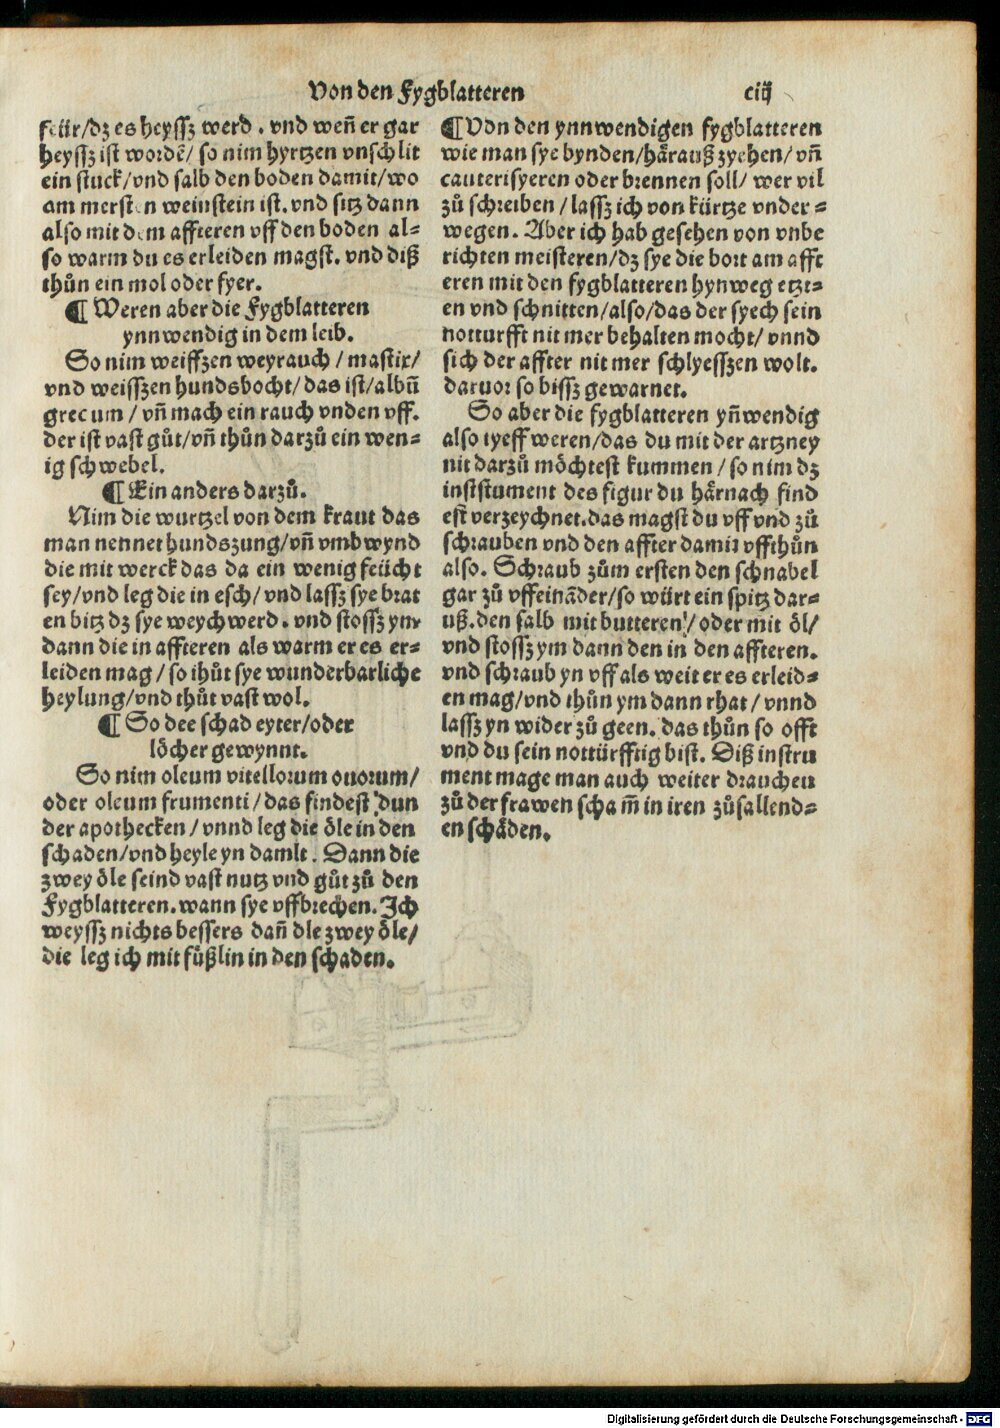 Von den Fygblatteren
ciij
feür/dz es heyssz werd . vnd wen̄ er gar
heyssz ist wordē/ so nim hyrtzen vnschlit
ein stuck/vnd salb den boden damit/wo
am mersten weinstein ist. vnd sitz dann
also mit dem affteren vff den boden al⸗
so warm du es erleiden magst. vnd diß
thůn ein mol oder fyer.
¶ Weren aber die Fygblatteren
ynnwendig in dem leib.
So nim weiffzen weyrauch / mastix/
vnd weisszen hundsbocht/das ist/albū
grecum / vn̄ mach ein rauch vnden vff.
der ist vast gůt/vn̄ thůn darzů ein wen⸗
ig schwebel.
¶ Ein anders darzů.
Nim die wurtzel von dem kraut das
man nennet hundszung/vn̄ vmbwynd
die mit werck das da ein wenig feücht
sey/vnd leg die in esch/ vnd lassz sye brat
en bitz dz sye weych werd . vnd stossz ynn
dann die in affteren als warm er es er⸗
leiden mag / so thůt sye wunderbarliche
heylung/vnd thůt vast wol.
¶ So dee schad eyter/oder
löcher gewynnt.
So nim oleum vitellorum ouorum/
oder oleum frumenti / das findest dun
der apothecken / vnnd leg die öle in den
schaden/vnd heyle yn damlt . Dann die
zwey öle seind vast nutz vnd gůt zů den
Fygblatteren. wann sye vffbrechen. Ich
weyssz nichts bessers dan̄ dle zwey öle/
die leg ich mit füßlin in den schaden.
¶Von den ynnwendigen fygblatteren
wie man sye bynden/härauß zyehen/ vn̄
cauterisyeren oder brennen soll/ wer vil
zů schreiben / lassz ich von kürtze vnder⸗
wegen. Aber ich hab gesehen von vnbe
richten meisteren/dz sye die bort am afft
eren mit den fygblatteren hynweg etzt⸗
en vnd schnitten/also/das der syech sein
notturfft nit mer behalten mocht/ vnnd
sich der affter nit mer schlyesszen wolt.
daruor so bissz gewarnet.
So aber die fygblatteren yn̄wendig
also tyeff weren/das du mit der artzney
nit darzů möchtest kummen / so nim dz
inststument des figur du härnach find
est verzeychnet. das magst du vff vnd zů
schrauben vnd den affter damit vffthůn
also. Schraub zům ersten den schnabel
gar zů vffeināder/so würt ein spitz dar⸗
uß. den salb mit butteren / oder mit öl/
vnd stossz ym dann den in den affteren.
vnd schraub yn vff als weit er es erleid⸗
en mag/vnd thůn ym dann rhat / vnnd
lassz yn wider zů geen. das thůn so offt
vnd du sein nottürfftig bist. Diß instru
ment mage man auch weiter brauchen
zů der frawen scham̄ in iren zůfallend⸗
en schäden.
Digitalisierung gefördert durch die Deutsche Forschungsgemeinschaft - DFG